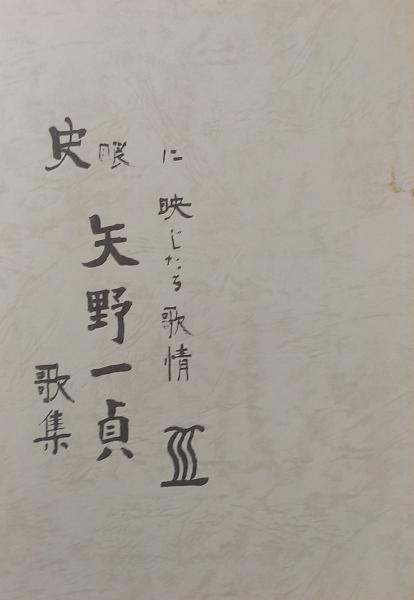 史眼に映じたる歌情 Ⅲ
矢野一貞
歌集